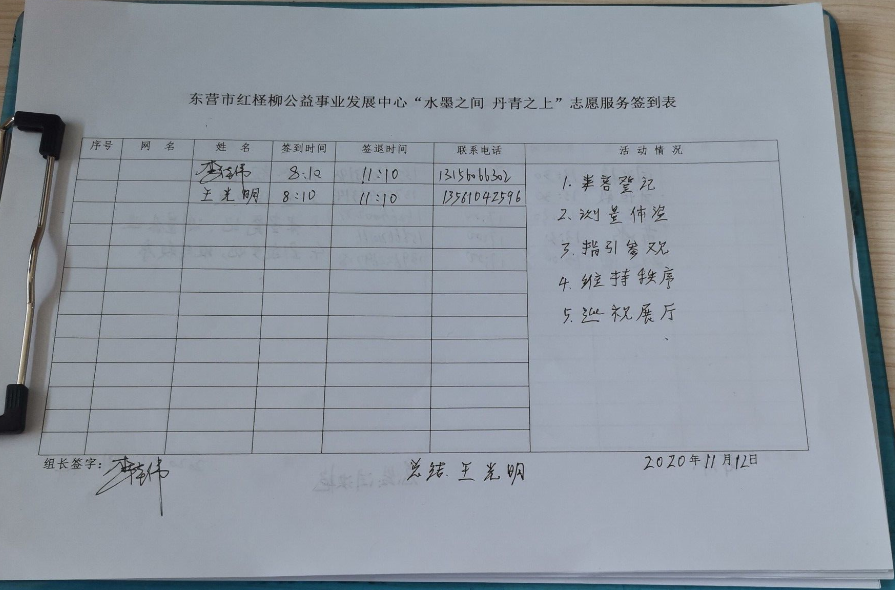 东营市红柽柳公益事业发展中心“水墨之间 丹青之上”志愿服务签到表
序号 网 名 姓 名 签到时间 签退时间 联系电话 活 动 情 况
8:10 11:10
王光明 8:10 11:10 13561042596
1. 来客登记
2. 测量体温
3. 指引参观
4. 维持秩序
5. 巡视展厅
组长签字:
总结 王光明
2020年11月12日